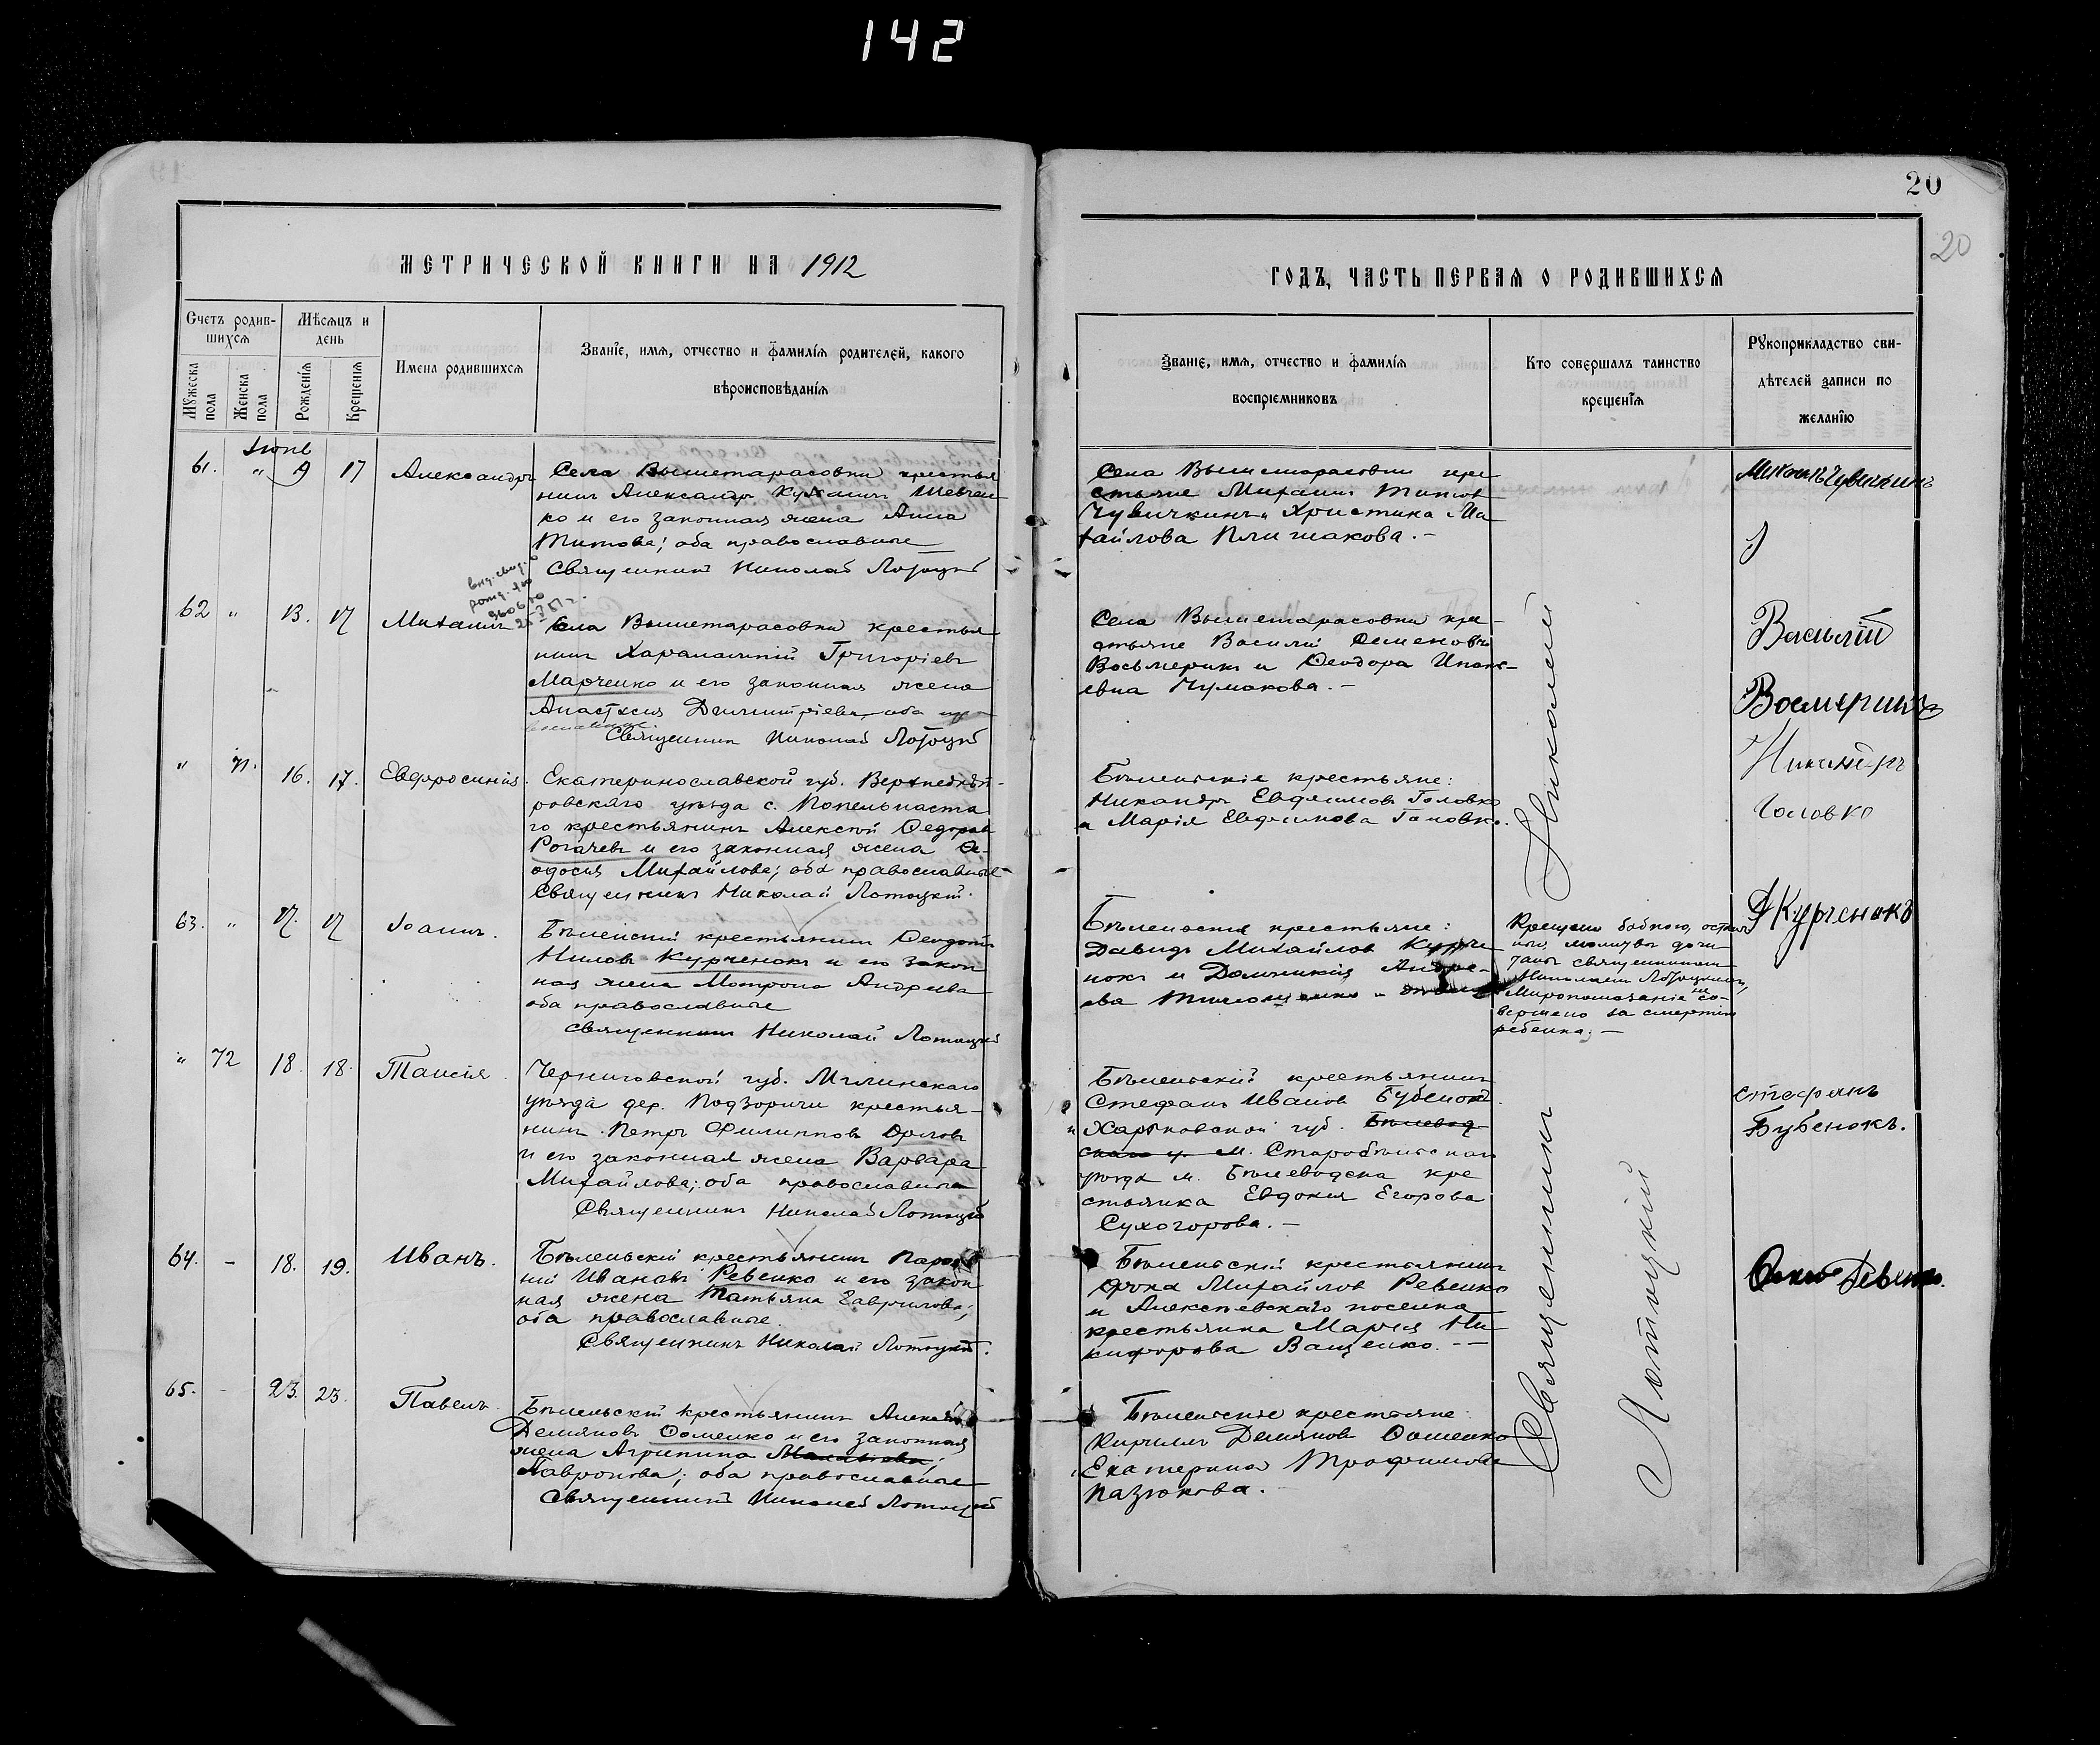 142
20
20
МЕТРИЧЕСКОЙ КНИГИ НА 1912
ГОДЪ, ЧАСТЬ ПЕРВАЯ О РОДИВШИХСЯ
Счетъ родив-
шихся
Мѣсяцъ и
день
Мужеска
пола
Женска
пола
Рожденія
Крещенія
Имена родившихся
Званіе, имя, отчество и фамилія родителей, какого
вѣроисповѣданія
Званіе, имя, отчество и фамилія
воспріемниковъ
Кто совершалъ таинство
крещенія
Рукоприкладство сви-
дѣтелей записи по
желанію
Іюнь
61. " 9 17 Александръ
Села Вышетарасовки крестья
нинъ Александръ Шевчен
ко и его законная жена Анна
Титова; оба православные
Священникъ Николай Лотоцкій
Села Вышетарасовки кре
стьяне Михаилъ Титовъ
Чувичкинъ и Христина Ми
хайлова Плишакова. –
62 " 13. 17 Михаилъ
Села Вышетарасовки крестья
нинъ Харалампій Григоріевъ
Марченко и его законная жена
Анастасія Димитріева, оба пра
вославные.
Священникъ Николай Лотоцкій
Села Вышетарасовки кре-
стьяне Василій Семеновъ
Восьмерикъ и Ѳеодора
евна Чумакова. –
Василій
" 71. 16. 17. Евфросинія.
Екатеринославской губ. Верхнеднѣп-
ровскаго уѣзда с. Попельнаста
го крестьянинъ Алексѣй Ѳедоровъ
Рогачевъ и его законная жена Ѳе-
одосія Михайлова; оба православные
Священникъ Николай Лотоцкій.
Бѣленьскіе крестьяне:
Никандръ Евфимовъ Головко
и Марія Евфимова Головко.
Головко
63. " 17. 17 Іоаннъ.
Бѣленьскій крестьянинъ Ѳеодотъ
Ниловъ Курченокъ и его закон
ная жена Матрона Андреева
оба православные
Священникъ Николай Лотоцкій
Бѣленьскіе крестьяне:
Давидъ Михайловъ Курче
нокъ и Домникія Андре-
ева
Крещено бабкою, осталь
ныя молитвы дочи
таны священникомъ
Николаемъ Лотоцкимъ,
Миропомазаніе не со-
вершено за смертію
ребенка. –
Курченокъ
" 72 18. 18. Таисія.
Черниговской губ. Мглинскаго
уѣзда дер. Подзоричи крестья-
нинъ Петръ Филипповъ Орловъ
и его законная жена Варвара
Михайлова; оба православные
Священникъ Николай Лотоцкій
Бѣленьскій крестьянинъ
Стефанъ Ивановъ Бубенокъ
и Харьковской губ.
Старобѣльскаго
уѣзда м. Бѣловодска кре
стьянка Евдокія Егорова
Сухогорова. –
Стефанъ
Бубенокъ.
64. – 18. 19. Иванъ.
Бѣленьскій крестьянинъ
Ивановъ Ревенко и его закон
ная жена Татьяна Гаврилова;
оба православные.
Священникъ Николай Лотоцкій.
Бѣленьскій крестьянинъ
Фока Михайловъ Ревенко
и Алексѣевскаго поселка
крестьянка Марія Ни
кифорова Ващенко. –
Фока Ревенко.
65. – 23. 23. Павелъ.
Бѣленьскій крестьянинъ Алексѣй
Деміановъ Ѳоменко и его законная
жена Агрипина
Лавронова; оба православные
Священникъ Николай Лотоцкій
Бѣленьскіе крестьяне:
Кириллъ Деміановъ Ѳоменко
и Екатерина Трофимова
Назюкова.
Священникъ Николай
Лотоцкій